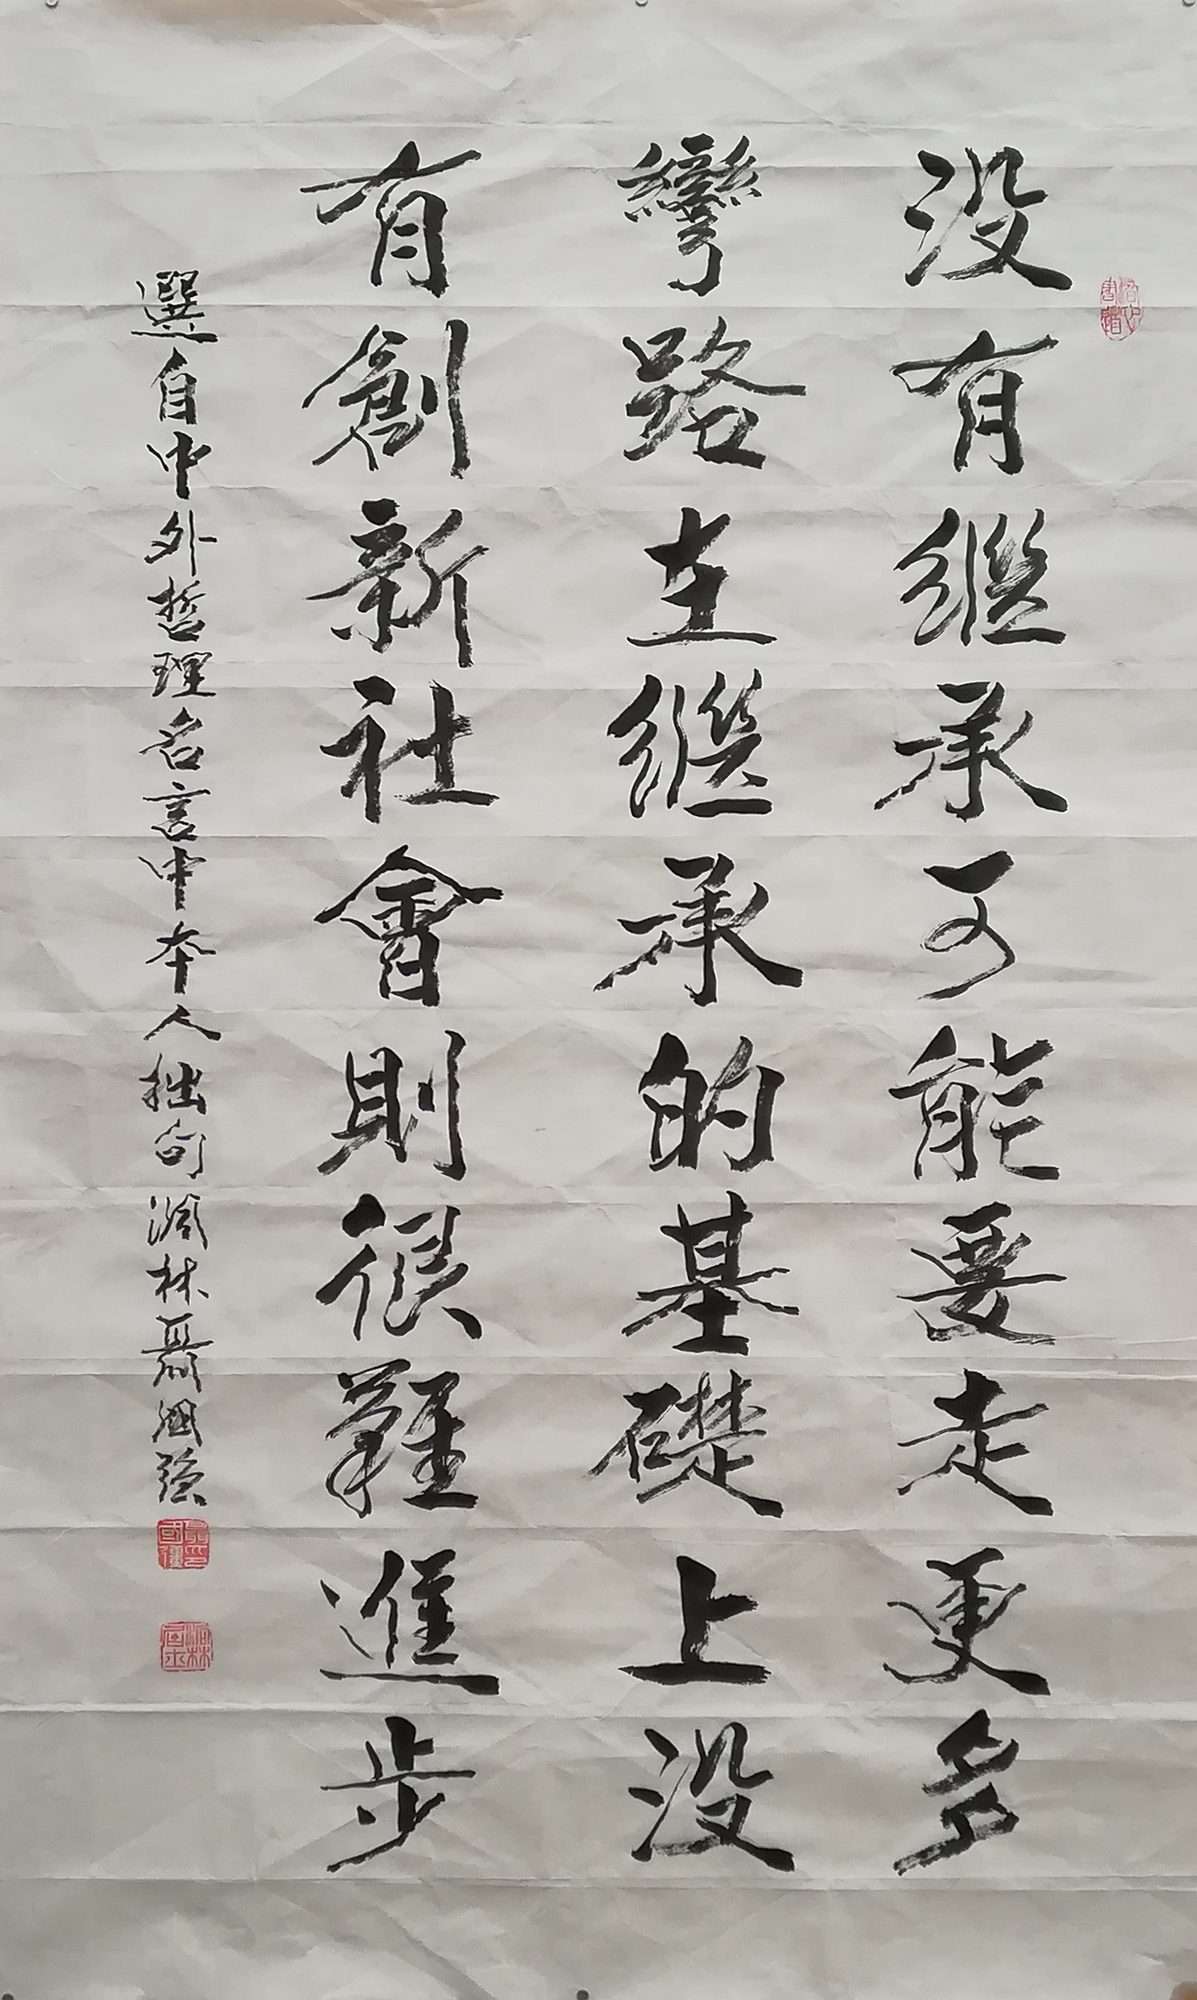 没有继承可能要走更多
彎路在继承的基礎上没
有創新社會則很難進步
選自中外哲理名言中本人拙句 林聶國強